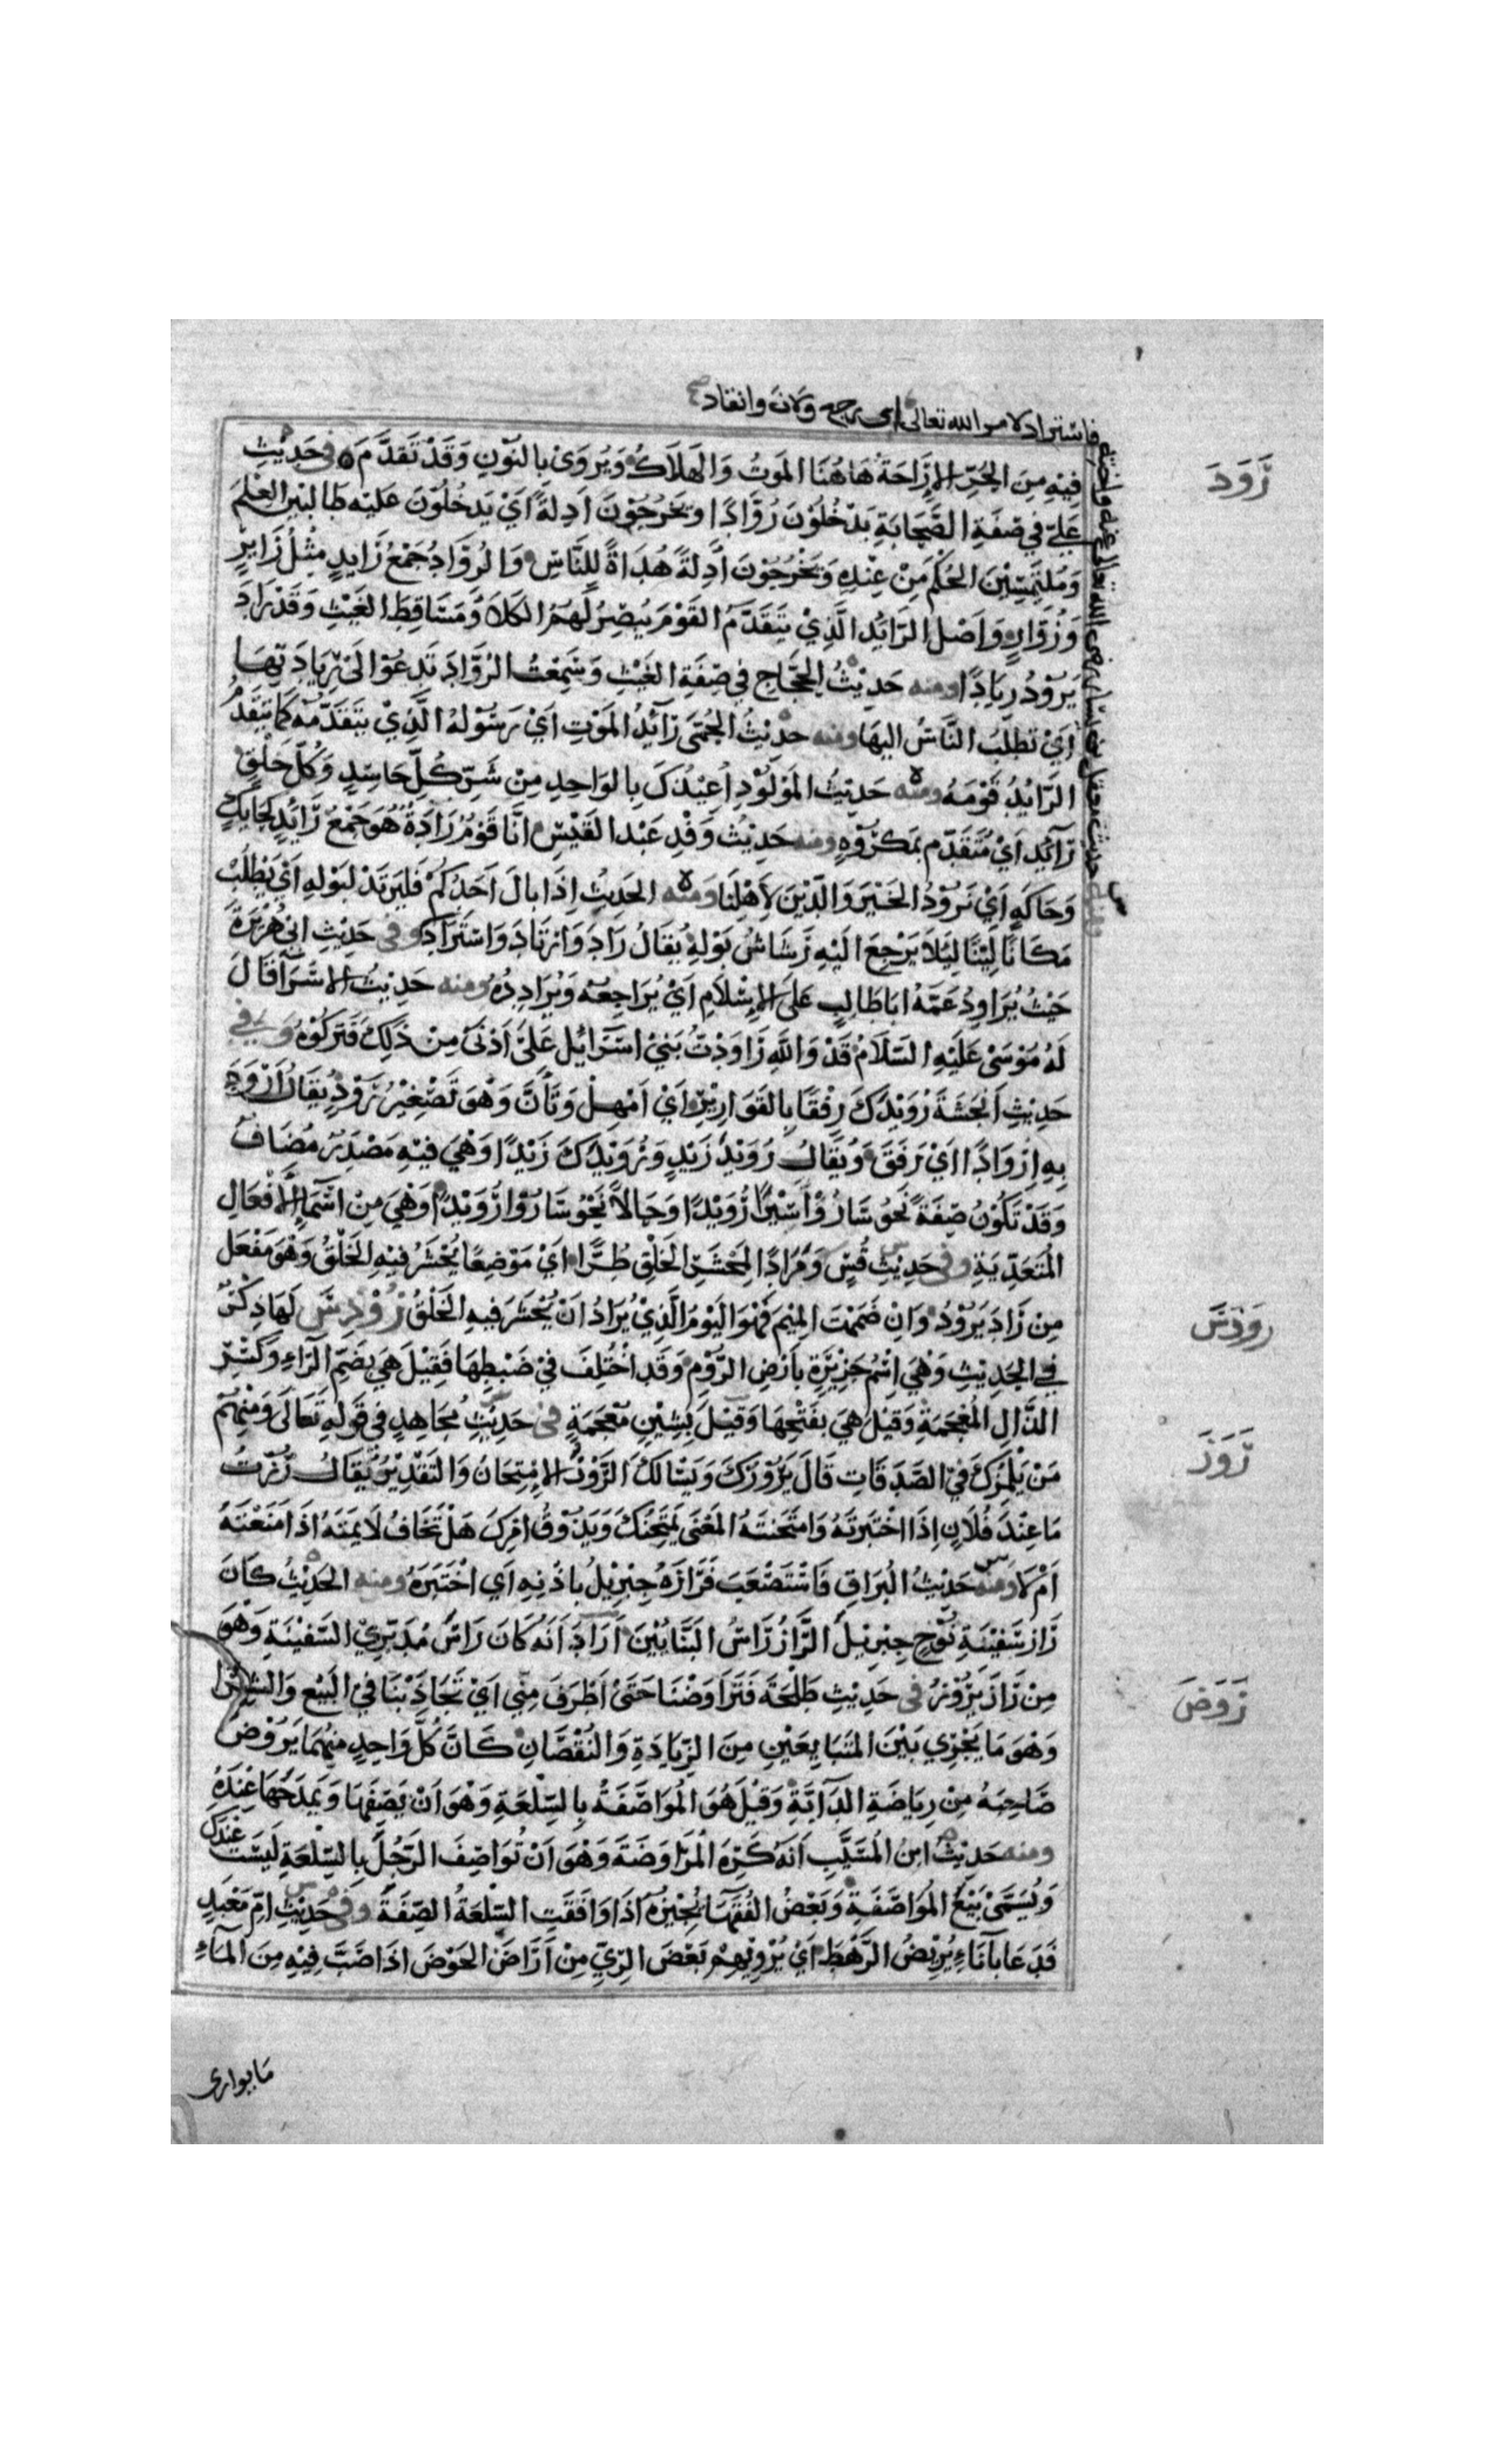 فاستراد لامر الله تعالى اي رجع ولان وانقاد صح
ومنه حديث معقل بن يسار رضي الله تعالى عنه واخته
رَوَدَ
فِيْهِ مِنَ الحُرِّ الاِرَاحَةُ هَاهُنَا المَوتُ وَالهَلَاكُ وَيُرْوَىْ بِالنُوْنِ وَقَدْ تَقَدَّمَ فى حَدِيْثِ
عَلِيّ في صِفَةِ الصَّحَابَةِ يَدْخُلُوْنَ رُوَّادًا وَيَخْرُجُوْنَ اَدِلةً اَيْ يَدخُلُوْنَ عَليْه طَالِبْيْنَ العِلْمَ
وَمُلتَمِسِيْنَ الحُكْمَ مِنْ عِنْدِهِ وَيَخْرُجُوْنَ اَدِلةً هُدَاةً لِلنَّاسِ وَالرُوَّادُ جَمْعُ رَايِدٍ مِثْلُ زَايِرٍ
وَزُوَّارٍ وَاَصْل الرَايْد الَّذِيْ يَتَقَدَّمُ القَوْمَ يُبْصِرُ لَهُمُ الكَلَاَ وَمَسَاقِطَ الغَيْثِ وَقَدْ رَادَ
يَرُوْدُ رِيَادًا ومنه حَدِيْثُ الحَجَّاجِ في صِفَةِ الغَيْثِ وَسَمِعْتُ الرُوَّادَ تَدعُوْ الَىْ رِيَادَتِهَا
اَيْ تَطلبُ النَّاسُ اليهَا ومنه حدْيثُ الحُمَّى رَآئدُ المَوْتِ اَيْ رَسُوْلهُ الَّذِيْ يَتَقَدَّمُهُ كَمَا يَتَقَدَّمُ
الرَايْدُ قَوْمَهُ ومنه حَدِيثُ المَوْلُوْدِ اُعِيْذُكَ بِالوَاحِدِ مِنْ شَرِّ كُلّ حَاسِدٍ وَكُلّ خَلْقٍ
رَآئِد اَيْ مُتَقَدّم بمَكرُوْهٍ ومنه حَدِيْثُ وَفْدِ عَبْد القَيْسِ انَّا قَوْمٌ رَادَةٌ هُوَ جَمْعُ رَائِدٍ كَحَايِكٍ
وَحَاكَةٍ اَيْ نَرُوْدُ الخَيْرَ وَالدِّيْنَ لِاَهْلِنَا وَمنْه الحَدِيثُ اِذَا بَالَ اَحَدُكمْ فَليَرتَدْ لِبَوْلِهِ اَيْ يَطْلُبْ
مَكَانًا لَيّنًا لِيَلاَ يَرْجِعَ الَيْهِ رَشَاشُ بَوْلِهِ يُقَالُ رَادَ وَارْتَادَ وَاسْتَرَادَ وفى حَدِيْثِ ابيْ هُرَيْرَةَ
حَيْثُ يُرَاوِدُ عَمَّهُ ابَا طَالِبٍ عَلَى الاِسْلَامِ اَيْ يُرَاجِعُهُ وَيُرَادِدُهُ ومنه حَدِيْثُ الاسْرَآ قَالَ
لَهُ مُوْسَىْ عَلَيْهِ السَّلَامُ قَدْ وَاللهِ رَاوَدْتُ بَنِيْ اسْرَآئِيْل عَلَىْ اَدْنَىْ مِنْ ذَلِكَ فَتَرَكُوْهُ وَفي
حَدِيْثِ اَنْجَشَةَ رُوَيْدَكَ رِفْقًا بِالقَوَارِيْرِ اَيْ اَمْهِلْ وَتَأَنَّ وَهْوَ تَصْغِيْرُ رَوْدٍ يُقَالُ اَرْوَدَ
بِهِ اِرْوَادًا ايْ رَفَقَ وَيُقَالُ رُوَيْدَ زَيْدٍ وَرُوَيْدَكَ زَيْدًا وَهْيَ فِيْهِ مَصْدَرٌ مُضَافٌ
وَقَدْ تَكُوْنُ صِفَةً نَحْوَ سَارُوْا سَيْرًا رُوَيْدًا وَحَالاً نَحْوُ سَارُوْا رُوَيْدًا وَهْيَ مِنْ اَسْمَاءِ الاَفْعَالِ
المُتَعَدِّيَةِ وفى حَدِيْثِ قُسٍ وَمَرَادًا لِمَحْشَرِ الخَلْقِ طُرًّا اَيْ مَوْضِعًا يُحْشَرُ فِيْهِ الخَلْقُ وَهْوَ مَفْعَل
مِنْ رَادَ يَرُوْدُ وَانْ ضَمَمْتَ المِيْمَ فَهْوَ اليَوْمُ الَّذِيْ يُرَادُ اَنْ يُحْشَرَ فِيهِ الخَلْقُ رُوْذِسَ لَهَا ذِكْرٌ
رَوذسَ
في الحَدِيْثِ وَهْيَ اِسْمُ جَزِيْرَةٍ بِاَرْضِ الرُّوْمِ وَقَدِ اخْتُلِفَ فيْ ضَبْطِهَا فَقِيْلَ هِيَ بِضَمِّ الرَآءِ وَكَسْرِ
الذَّالِ المُعْجَمَةِ وَقِيْلَ هِيَ بِفَتْحِهَا وَقِيْلَ بِشِيْنٍ مُعْجَمَةٍ فى حَدِيْثِ مُجَاهِدٍ في قَوْلِهِ تَعَالَى وَمِنْهُمْ
رَوَزَ
مَنْ يَلْمِزُكَ في الصَّدَقَاتِ قَالَ يَرُوْزُكَ وَيَسْالكَ الرَّوْزُ الاِمْتِحَانُ وَالتَّقْدِيْرُ يُقَالُ رُزْتُ
مَا عِنْدَ فُلَانٍ اِذَا اخْتَبَرتَهُ وَامْتَحَنتَهُ المَعْنَى يَمْتَحِنُكَ وَيَذُوْقُ امْرَكَ هَلْ تَخَافُ لَايِمَتَهُ اذَا مَنَعْتَهُ
اَمْ لَا ومنه حَدِيْثُ البُرَاقِ فَاسْتَصْعَبَ فَرَازَهُ جِبْرِيْلُ بِاذْنِهِ اَي اخْتَبَرَهُ ومنه الحَدِيْثُ كَانَ
رَازَ سَفِيْنَةِ نُوْحٍ جِبْرِيْلُ الرَّازُ رَاسُ البَنَّايِيْنَ اَرَادَ اَنَّهُ كَانَ رَاسَ مُدَبِّرِي السَّفِيْنَةِ وَهْوَ
مِنْ رَازَ يَرُوْزُ فى حَدِيْثِ طَلْحَةَ فَتَرَاوَضْنَا حَتَىْ اصْطَرَفَ مِنِّي اَيْ تَجَاذَبْنَا فيْ البَيْعِ وَالشِّرَا
رَوَضَ
وَهْوَ مَا يَجْرِي بَيْنَ المُتَبَايِعَيْنِ مِنَ الزِّيَادَةِ وَالنُقْصَانِ كَانَّ كُلَّ وَاحِدٍ مِنْهُمَا يَرُوْضُ
صَاحِبَهُ مِنْ رِيَاضَةِ الدَّآبَّةِ وَقِيْلَ هُوَ المُوَاصَفَةُ بِالسِّلْعَةِ وَهْوَ اَنْ يَصِفَهَا وَيَمدَحَهَا عِنْدَهُ
ومنه حَدِيْثُ ابنِ المُسَيَّبِ اَنَّهُ كَرِهَ المُرَاوَضَةَ وَهْوَ اَنْ تُوَاصِفَ الرَّجُلَ بِالسِّلْعَةِ لَيْسَتْ عِنْدَكَ
وَيُسَمَّىْ بَيْعَ المُوَاصَفَةِ وَبَعْضُ الفُقَهَآ يُجِيْزُهُ اذَا وَافَقَتِ السِّلْعَةُ الصِّفَةَ وفى حَدِيْثِ امِّ مَعْبَدٍ
فَدَعَا بِآنَاءٍ يُرِيْضُ الرَّهْطَ اَيْ يُرْوِيْهِمْ بَعْضَ الرِيِّ مِنْ اَرَاضَ الحَوْضَ اذَا صَبَّ فِيْهِ مِنَ المَآءِ
مَا يوارى